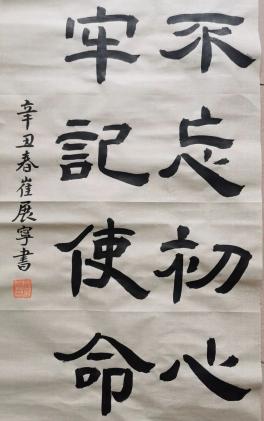 不忘初心
牢記使命
辛丑春崔展寧書